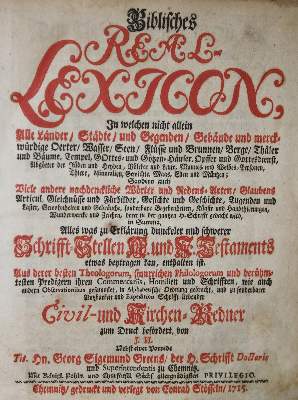 Biblisches
REAL-
LEXICON,
In welchen nicht allein
Alle Länder / Städte / und Gegenden / Gebäude und merck-
würdige Oerter / Wasser / Seen / Flüsse und Brunnen / Berge / Thäler
und Bäume, Tempel, GOttes- und Götzen-Häuser, Opffer und Gottesdienst,
Abgötter der Jüden und Heyden, Völcker und Manns- und Weibs-Personen,
Thiere, Mineralien, Gewichte, Maaß,
Sondern auch
Viele andere nachdenckliche Wörter und Redens-Arten / Glaubens
Articul, Gleichnüsse und Fürbilder, Gesichte und Geschichte, Tugenden und
Laster, und Gebräuche, Künste und Handthierungen,
Wunderwercke und Zeichen, derer in der gantzen H. Schrifft gedacht wird,
in Summa,
Alles was zu Erklärung dunckeler und schwerer
Schrifft-Stellen A. und N. Testaments
etwas beytragen kan, enthalten ist.
Aus derer besten Theologorum, Philologorum und berühm-
testen Predigern ihren Commentariis, Homilien und Schrifften, wie auch
andern Observationibus in Alphabetische Ordnung gebracht, und zu
und Schrifft liebender
Civil- und Kirchen-Redner
zum Druck befördert, von
J. H.
Nebst einer Vorrede
Tit. Hn. Georg Sigemund Greens / der H. Schrifft Doctoris
und Superintendentis zu Chemnitz.
Mit Königl. Pohln. und Churfürstl. Sächs. allergnädigsten PRIVILEGIO.
Chemnitz / gedruckt und verlegt von Conrad Stösseln / 1715.